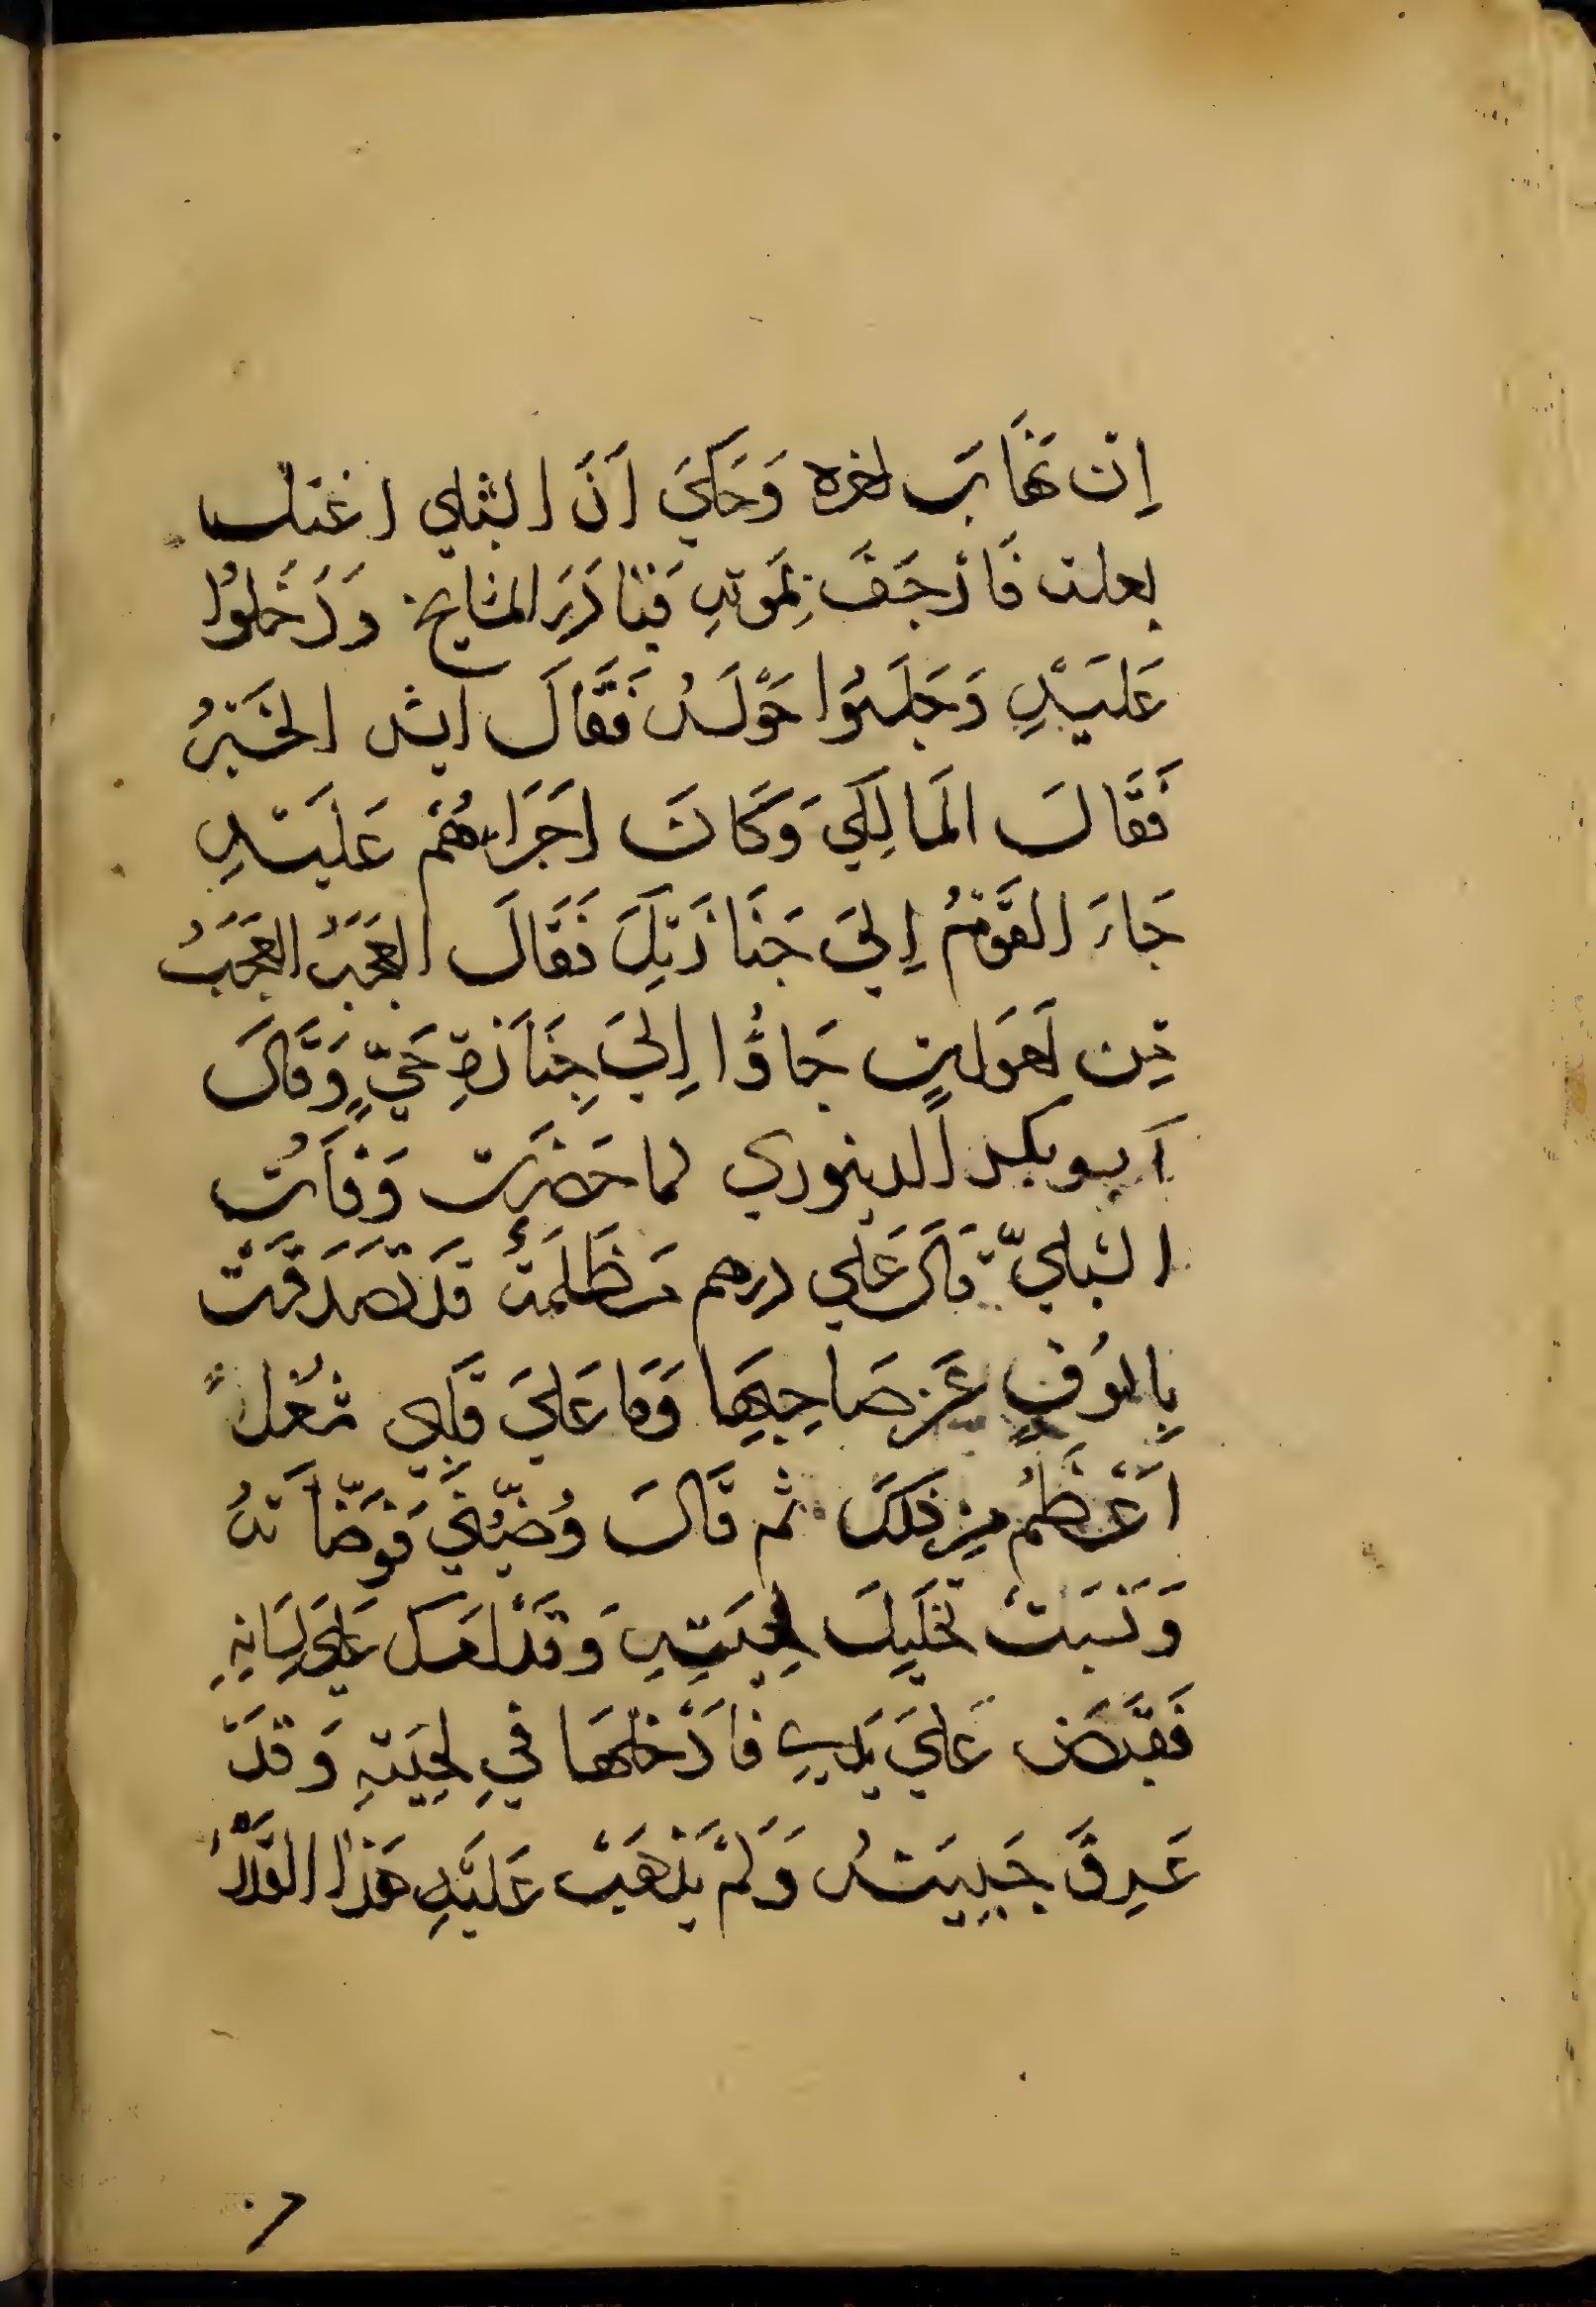 إن وَحَكَيَ أنَّ الشبلي اعتل
بعلة فَأرجَفَ بِمَوتهِ فَتبَادَرَ المشايخ وَدَخلوُا
عَليَهِ وَجَلسَوُا حَوَّلَهُ فَقَالَ ايش الخَبَرُ
فَقَالَ المَالِكيَ وَكَانَ اجَرَاهُم عَليَهِ
جَاءَ القَومُ اِليَ جَنَازَتِكَ فَقَالَ العَجَبُ العَجَبُ
مِن جَاؤُا اِليَ جِنَازةِ حَيٍّ وَقَالَ
أبو بكر الدينوري لما حَضَرَت وَفَاتُ
الشبليّ قَالَ عَلَي درهم مَظلَمَةٌ قَد تصَدَقَتْ
بِالوُفٍ عَن صَاحِبِهَا وَمَا عَلَيَ قَلبِي شغُلاً
أعَظَمُ مِن ذَلكَ ثم قَالَ وُضّئِنيَ فَوَضّأتهُ
وَنَسَيتُ تخَليِلَ لِحيَتِهِ وَقَدْ امسَكَ عَلي لِسَانِهِ
فَقَبَضَ عَليَ يَديِ فَأدْخلهَا فيِ لِحيَتهِ وَقَدْ
عَرِقَ جَبِينَهُ وَلمَْ يَذهَبْ عَليَهِ هَذا القَدْرُ